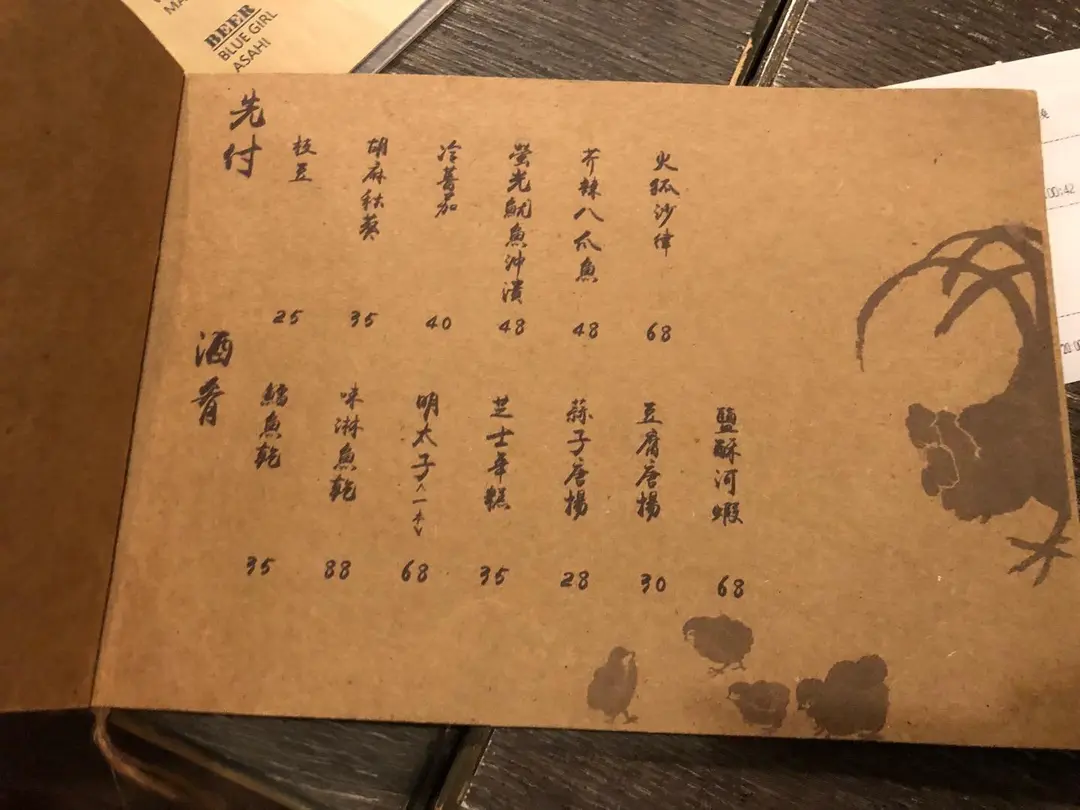 BEER
BLUE GIRL
ASAHI
先付
枝豆 25
胡麻秋葵 35
冷蕃茄 40
螢光魷魚沖漬 48
芥辣八爪魚 48
火狐沙律 68
酒肴
鱈魚乾 35
味淋魚乾 88
明太子(一本) 68
芝士年糕 35
蒜子唐揚 28
豆腐唐揚 30
鹽酥河蝦 68
:00:42
20:00